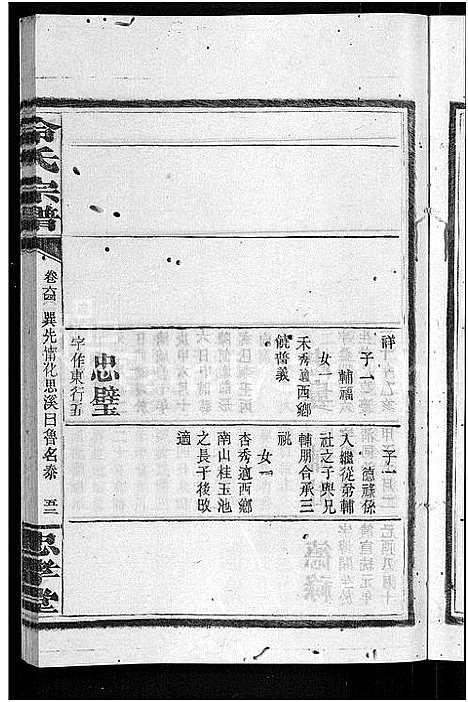 祥
子一 輔福
女一
禾秀適西鄉
饒啓義
忠璧
字作東行五
子一 德祿係
入繼從弟輔
社之子與兄
輔朋合承三
祧
女一
杏秀適西鄉
南山桂玉池
之長子後改
適
冷氏宗譜
卷六四 巽先情花思溪日魯名泰 五三
忠孝堂